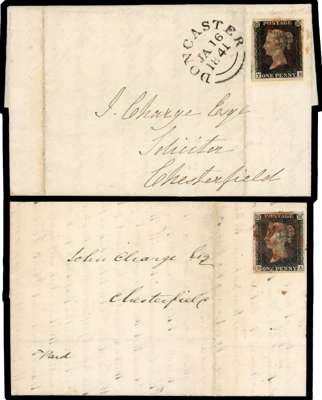 DONCASTER
JA 16
1841
POSTAGE
ONE PENNY
J. Charge Esqr
Soliciter
Chesterfield
POSTAGE
ONE PENNY
John Charge Esq
Chesterfield
Paid